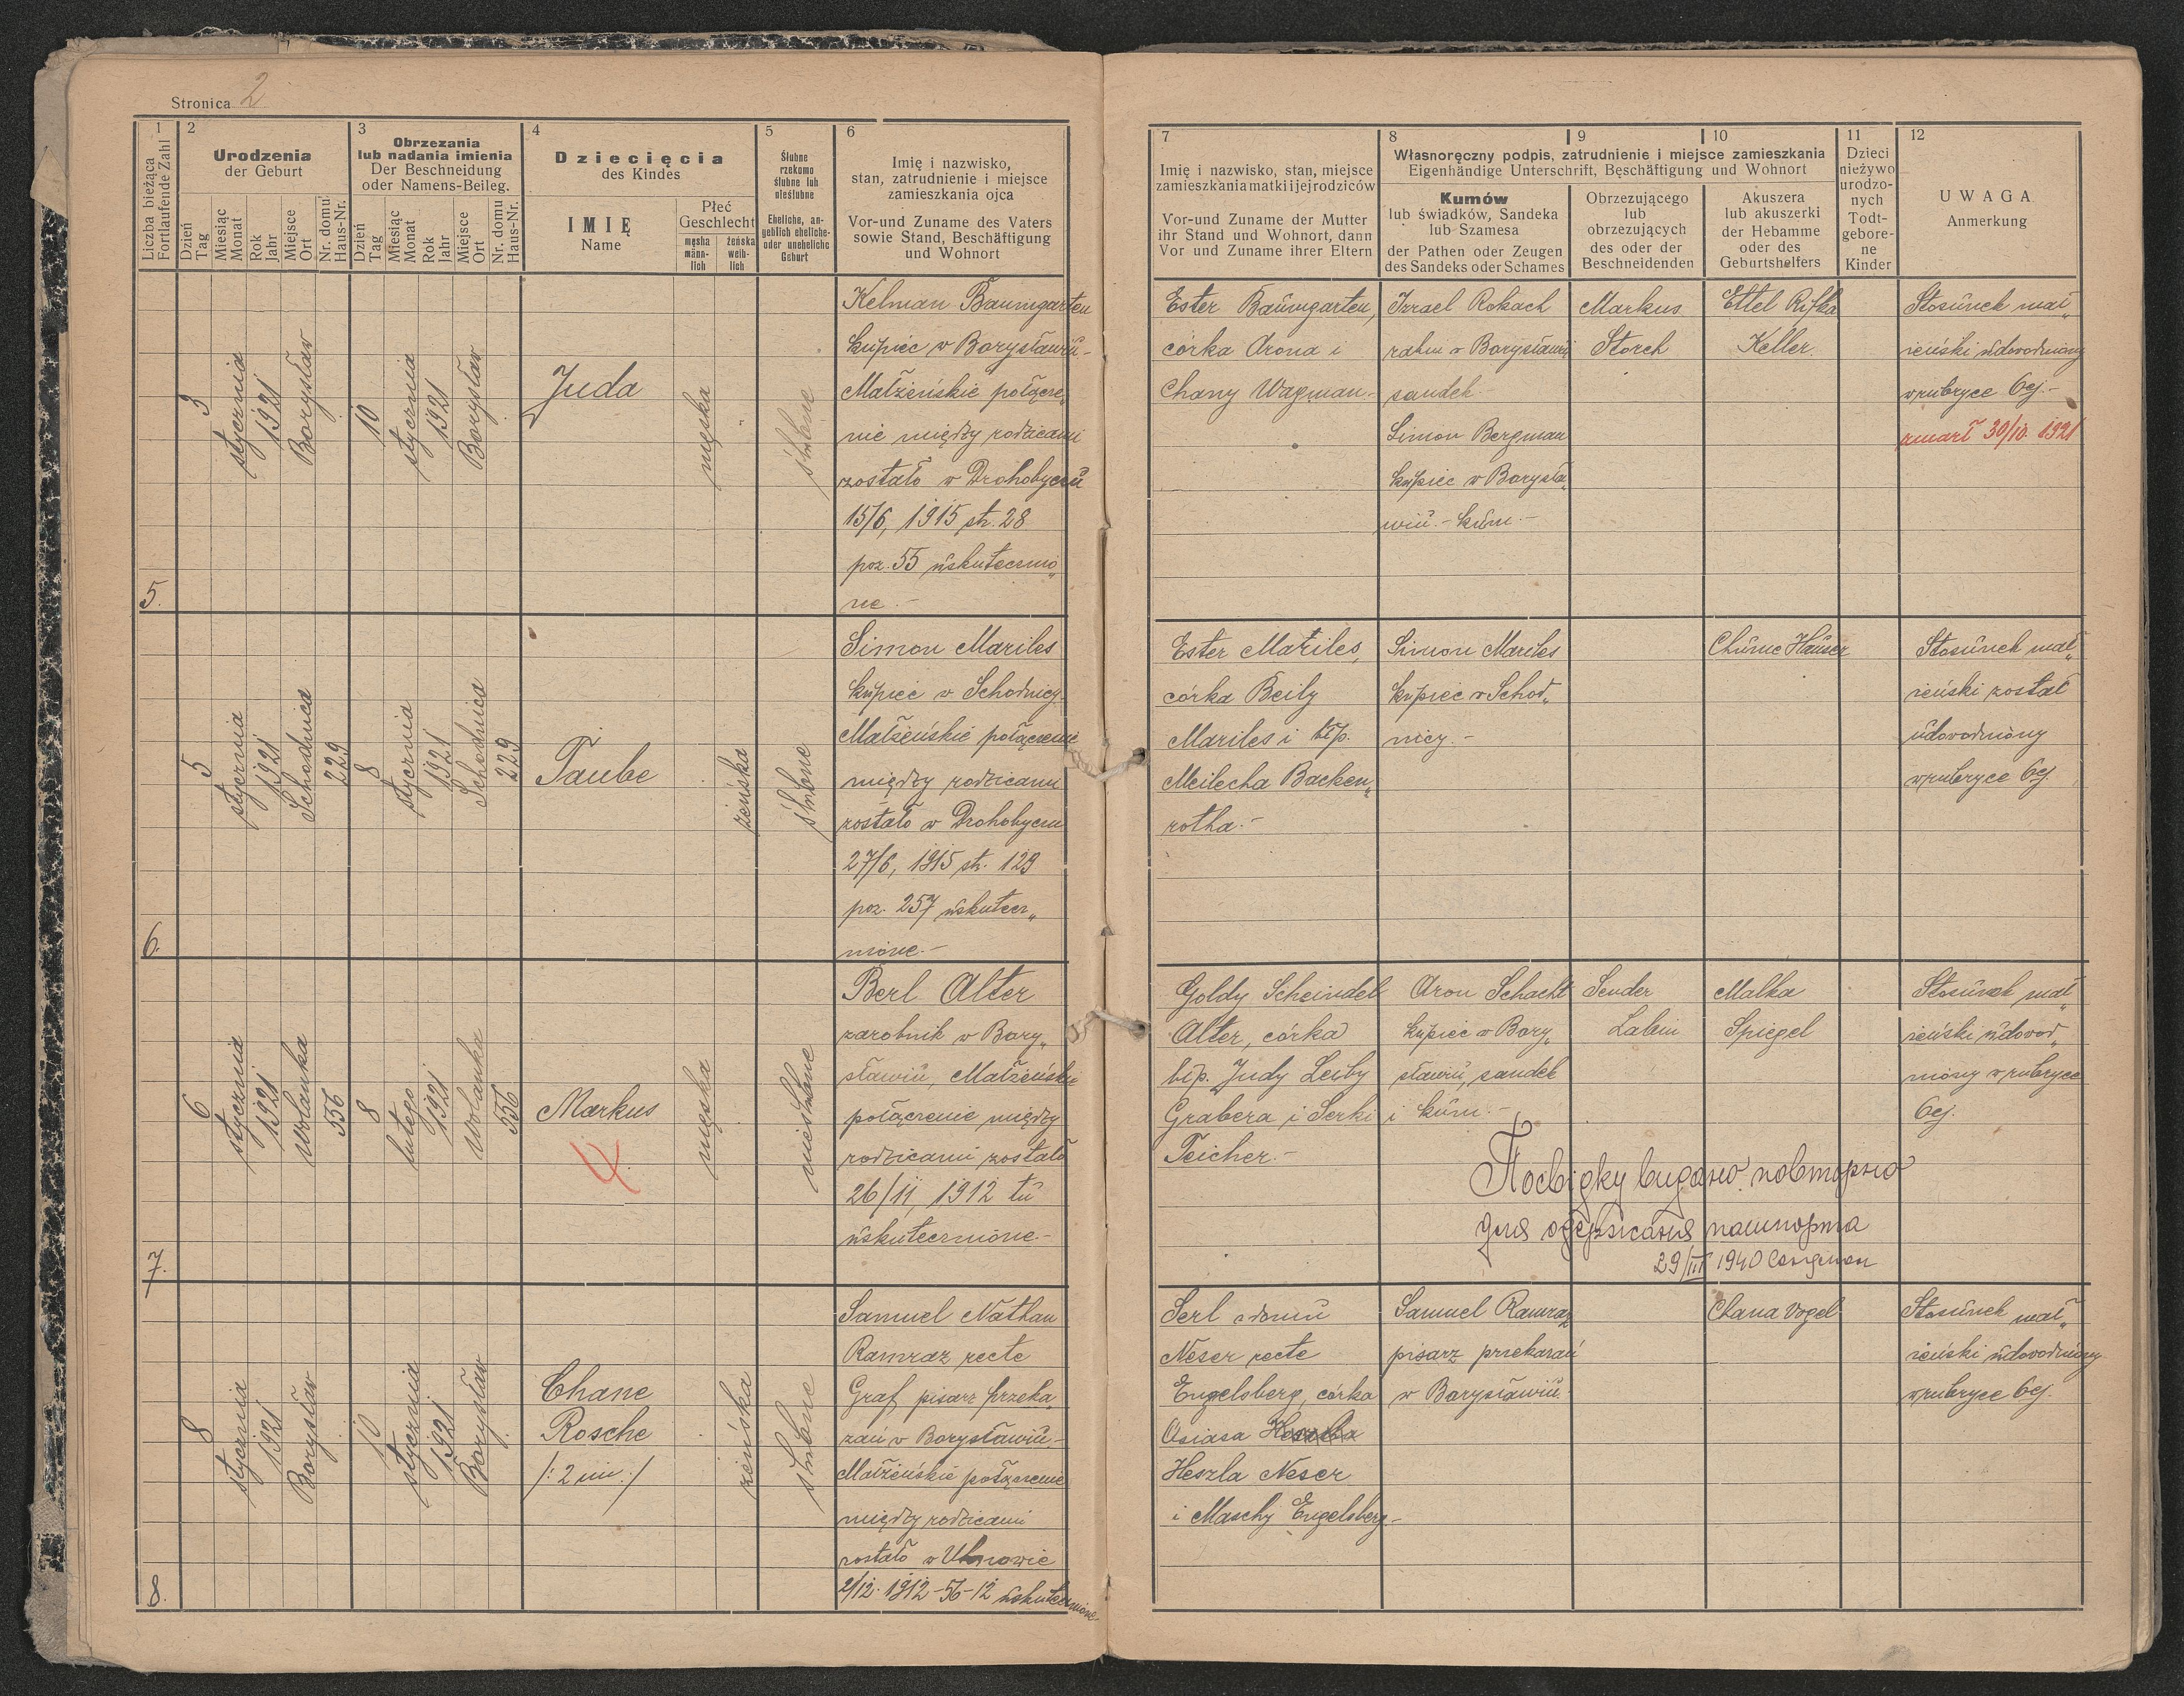 Stronica 2
1
Liczba bieżąca
Fortlaufende Zahl
2
Urodzenia
der Geburt
Dzień
Tag
Miesiąc
Monat
Rok
Jahr
Miejsce
Ort
Nr. domu
Haus-Nr.
3
Obrzezania
lub nadania imienia
Der Beschneidung
oder Namens-Beileg.
Dzień
Tag
Miesiąc
Monat
Rok
Jahr
Miejsce
Ort
Nr. domu
Haus-Nr.
4
Dziecięcia
des Kindes
IMIĘ
Name
Płeć
Geschlecht
męska
männ-
lich
żeńska
weib-
lich
5
Ślubne
rzekomo
ślubne lub
nieślubne
Eheliche, an-
geblich eheliche-
oder uneheliche
Geburt
6
Imię i nazwisko,
stan, zatrudnienie i miejsce
zamieszkania ojca
Vor-und Zuname des Vaters
sowie Stand, Beschäftigung
und Wohnort
7
Imię i nazwisko, stan, miejsce
zamieszkania matki i jej rodziców
Vor-und Zuname der Mutter
ihr Stand und Wohnort, dann
Vor und Zuname ihrer Eltern
8
9
10
Własnoręczny podpis, zatrudnienie i miejsce zamieszkania
Eigenhändige Unterschrift, Beschäftigung und Wohnort
Kumów
lub świadków, Sandeka
lub Szamesa
der Pathen oder Zeugen
des Sandeks oder Schames
Obrzezującego
lub
obrzezujących
des oder der
Beschneidenden
Akuszera
lub akuszerki
der Hebamme
oder des
Geburtshelfers
11
Dzieci
nieżywo
urodzo-
nych
Todt-
gebore-
ne
Kinder
12
UWAGA
Anmerkung
5.
3
stycznia
1921
Borysław
10
stycznia
1921
Borysław
Juda
męska
ślubne
Kelman Baumgarten
kupiec w Borysławiu-
Małżeńskie połącze„
nie między rodzicami
zostało w Drohobyczu
15/6, 1915 str. 28
poz. 55 uskutecznio„
ne.-
Ester Baumgarten,
córka Arona i
Chany Wagman.-
Izrael Rokach
rabin w Borysławiu
sandek-
Simon Bergman
kupiec w Borysła„
wiu.- kum.-
Markus
Storch
Ettel Rifka
Keller.
Stosunek mał„
żeński udowodniony
w rubryce 6ej.-
zmarł 30/10. 1921
6.
5
stycznia
1921
Schodnica
229
8
stycznia
1921
Schodnica
229
Taube
żeńska
ślubne
Simon Mariles
kupiec w Schodnicy.
Małżeńskie połączenie
między rodzicami
zostało w Drohobyczu
27/6, 1915 str. 129
poz. 257 uskutecz„
nione.-
Ester Mariles,
córka Beily
Mariles i błp.
Meilecha Backen„
rotha.-
Simon Mariles
kupiec w Schod„
nicy.-
Chume Hauser
Stosunek mał„
żeński został
udowodniony
w rubryce 6ej.
7.
6
stycznia
1921
Wolanka
556
8
lutego
1921
Wolanka
556
Markus
męska
nieślubne
Berl Alter
zarobnik w Bory„
sławiu, Małżeńskie
połączenie między
rodzicami zostało
26/11, 1912 tu
uskutecznione.-
Goldy Scheindel
Alter, córka
błp. Judy Leiby
Grabera i Serki
Teicher.-
Aron Schacht
kupiec w Bory„
sławiu, sandek
i kum.-
Sender
Labin
Malka
Spiegel
Stosunek mał„
żeński udowod„
niony w rubryce
6ej.
Посвідку видано повторно
для одержання пашпорта
29/III 1940
8.
8
stycznia
1921
Borysław
10
stycznia
1921
Borysław
Chane
Rosche
/: 2 im :/
żeńska
ślubne
Samuel Nathan
Ramraz recte
Graf, pisarz przeka„
zań w Borysławiu-
Małżeńskie połączenie
między rodzicami
zostało w Uhnowie
2/12. 1912-56-12 uskutecznione-
Serl z domu
Neser recte
Engelsberg, córka
Osiasa
Heszla Neser
i Maschy Engelsberg-
Samuel Ramraz
pisarz przekazań
w Borysławiu.
Chana Vogel
Stosunek mał„
żeński udowodniony
w rubryce 6ej.